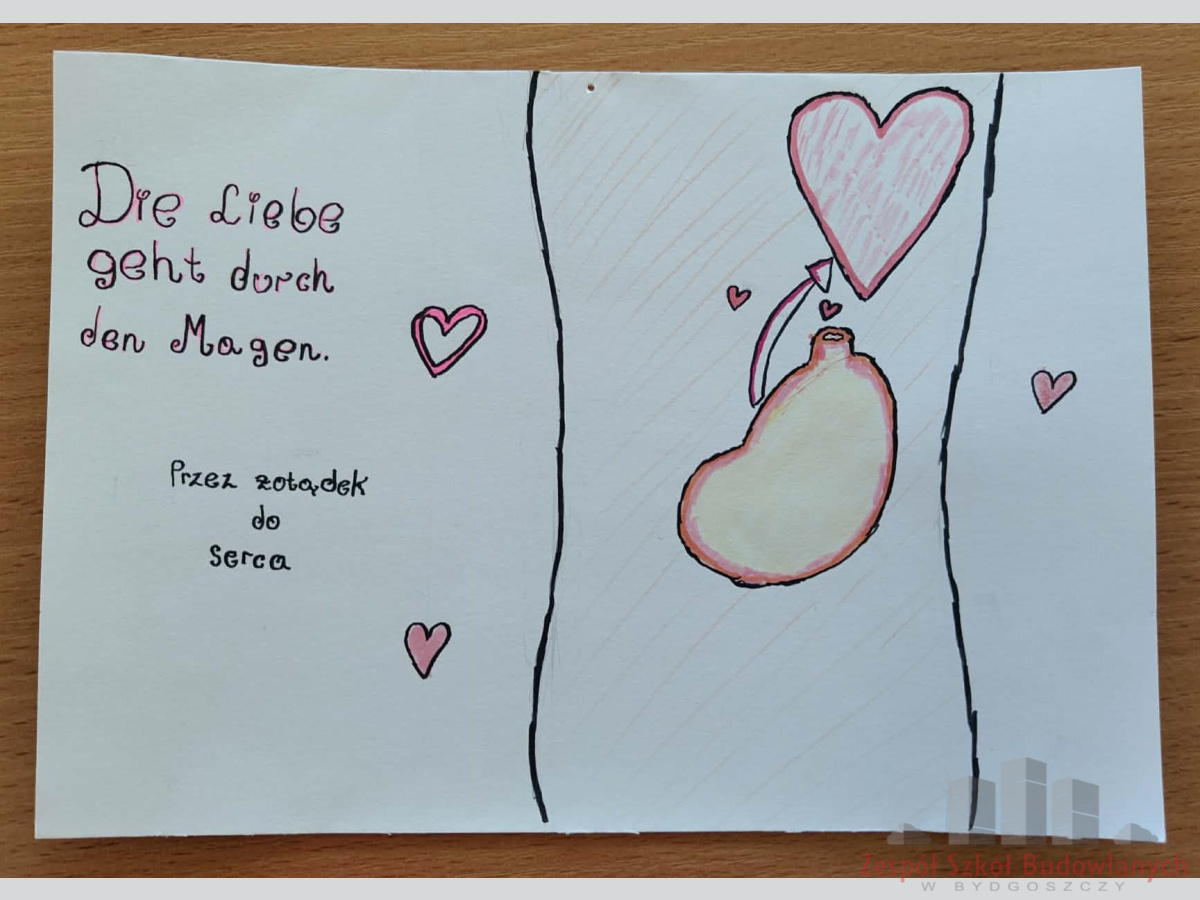 Die Liebe
geht durch
den Magen.
Przez żołądek
do
serca
Zespół Szkół Budowlanych
W BYDGOSZCZY